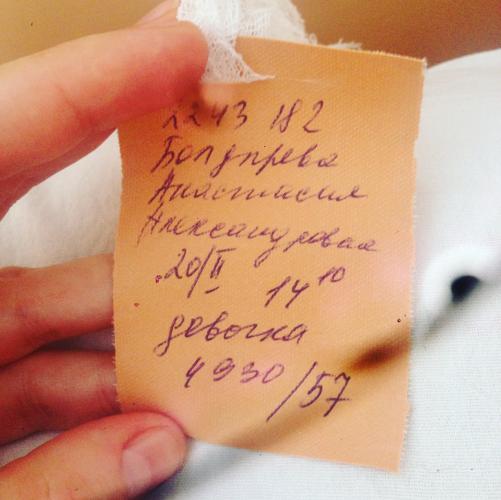 2243 182
Болдырева
Анастасия
Александровна
20/II 14 10
девочка
4930/57